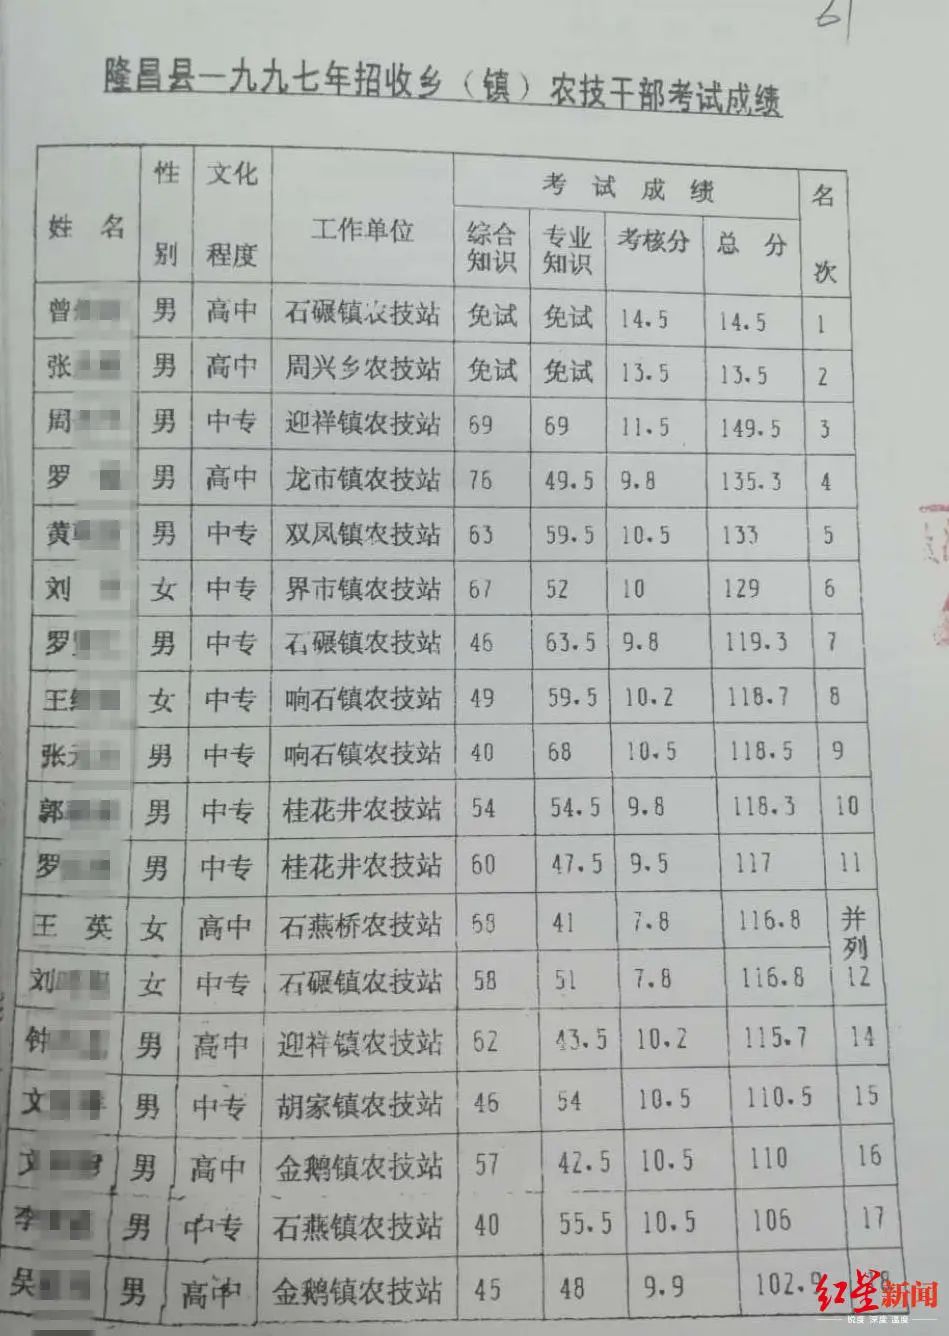 61
隆昌县一九九七年招收乡（镇）农技干部考试成绩
姓 名 性别 文化程度 工作单位 考 试 成 绩 名次
综合知识 专业知识 考核分 总 分
曾 男 高中 石碾镇农技站 免试 免试 14.5 14.5 1
张 男 高中 周兴乡农技站 免试 免试 13.5 13.5 2
周 男 中专 迎祥镇农技站 69 69 11.5 149.5 3
罗 男 高中 龙市镇农技站 76 49.5 9.8 135.3 4
黄 男 中专 双凤镇农技站 63 59.5 10.5 133 5
刘 女 中专 界市镇农技站 67 52 10 129 6
罗 男 中专 石碾镇农技站 46 63.5 9.8 119.3 7
王 女 中专 响石镇农技站 49 59.5 10.2 118.7 8
张元 男 中专 响石镇农技站 40 68 10.5 118.5 9
郭 男 中专 桂花井农技站 54 54.5 9.8 118.3 10
罗 男 中专 桂花井农技站 60 47.5 9.5 117 11
王 英 女 高中 石燕桥农技站 68 41 7.8 116.8 并列12
刘 女 中专 石碾镇农技站 58 51 7.8 116.8
钟 男 高中 迎祥镇农技站 62 43.5 10.2 115.7 14
文 男 中专 胡家镇农技站 46 54 10.5 110.5 15
文 男 高中 金鹅镇农技站 57 42.5 10.5 110 16
李 男 中专 石燕镇农技站 40 55.5 10.5 106 17
吴 男 高中 金鹅镇农技站 45 48 9.9 102.9 18
红星新闻
锐度 深度 温度